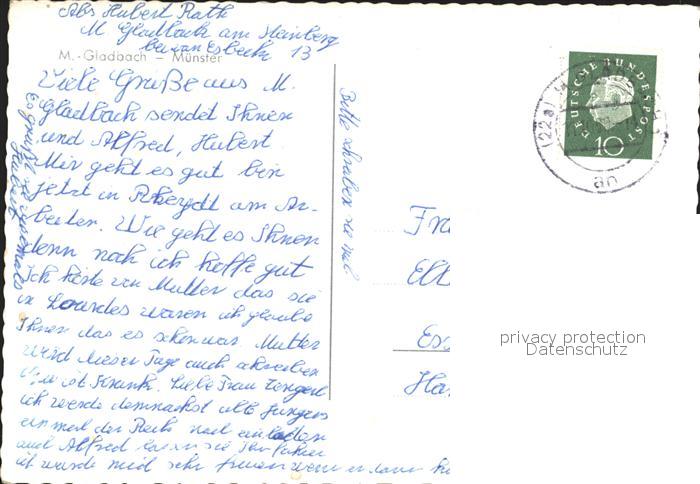 Abs Hubert Rath
M Gladbach am Steinberg
bei van Esbeck 13
M.-Gladbach – Münster
Viele Grüße aus M.
Gladbach sendet Ihnen
und Alfred, Hubert.
Mir geht es gut bin
jetzt in Rheydt am Ar-
beiten. Wie geht es Ihnen
denn noch ich hoffe gut
Ich hörte von Mutter das sie
in Lourdes waren ich glaube
Ihnen das es schön war. Mutter
wird dieser Tage auch schreiben
sie ist Krank. Liebe Frau
ich werde demnächst alle Jungens
einmal der Reihe nach einladen
und Alfred
ich würde mich sehr freuen wenn er dann
Es grüßt sie nochmals
Hubert
Bitte schreiben sie mal
DEUTSCHE BUNDESPOST
10
(22a)
an
Fra
Elt
Ess
Han
privacy protection
Datenschutz